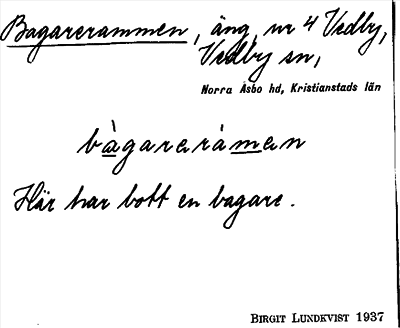 Bagarerammen, äng, nr 4 Vedby,
Vedby sn,
Norra Åsbo hd, Kristianstads län
bàgararàmen
Här har bott en bagare.
BIRGIT LUNDKVIST 1937